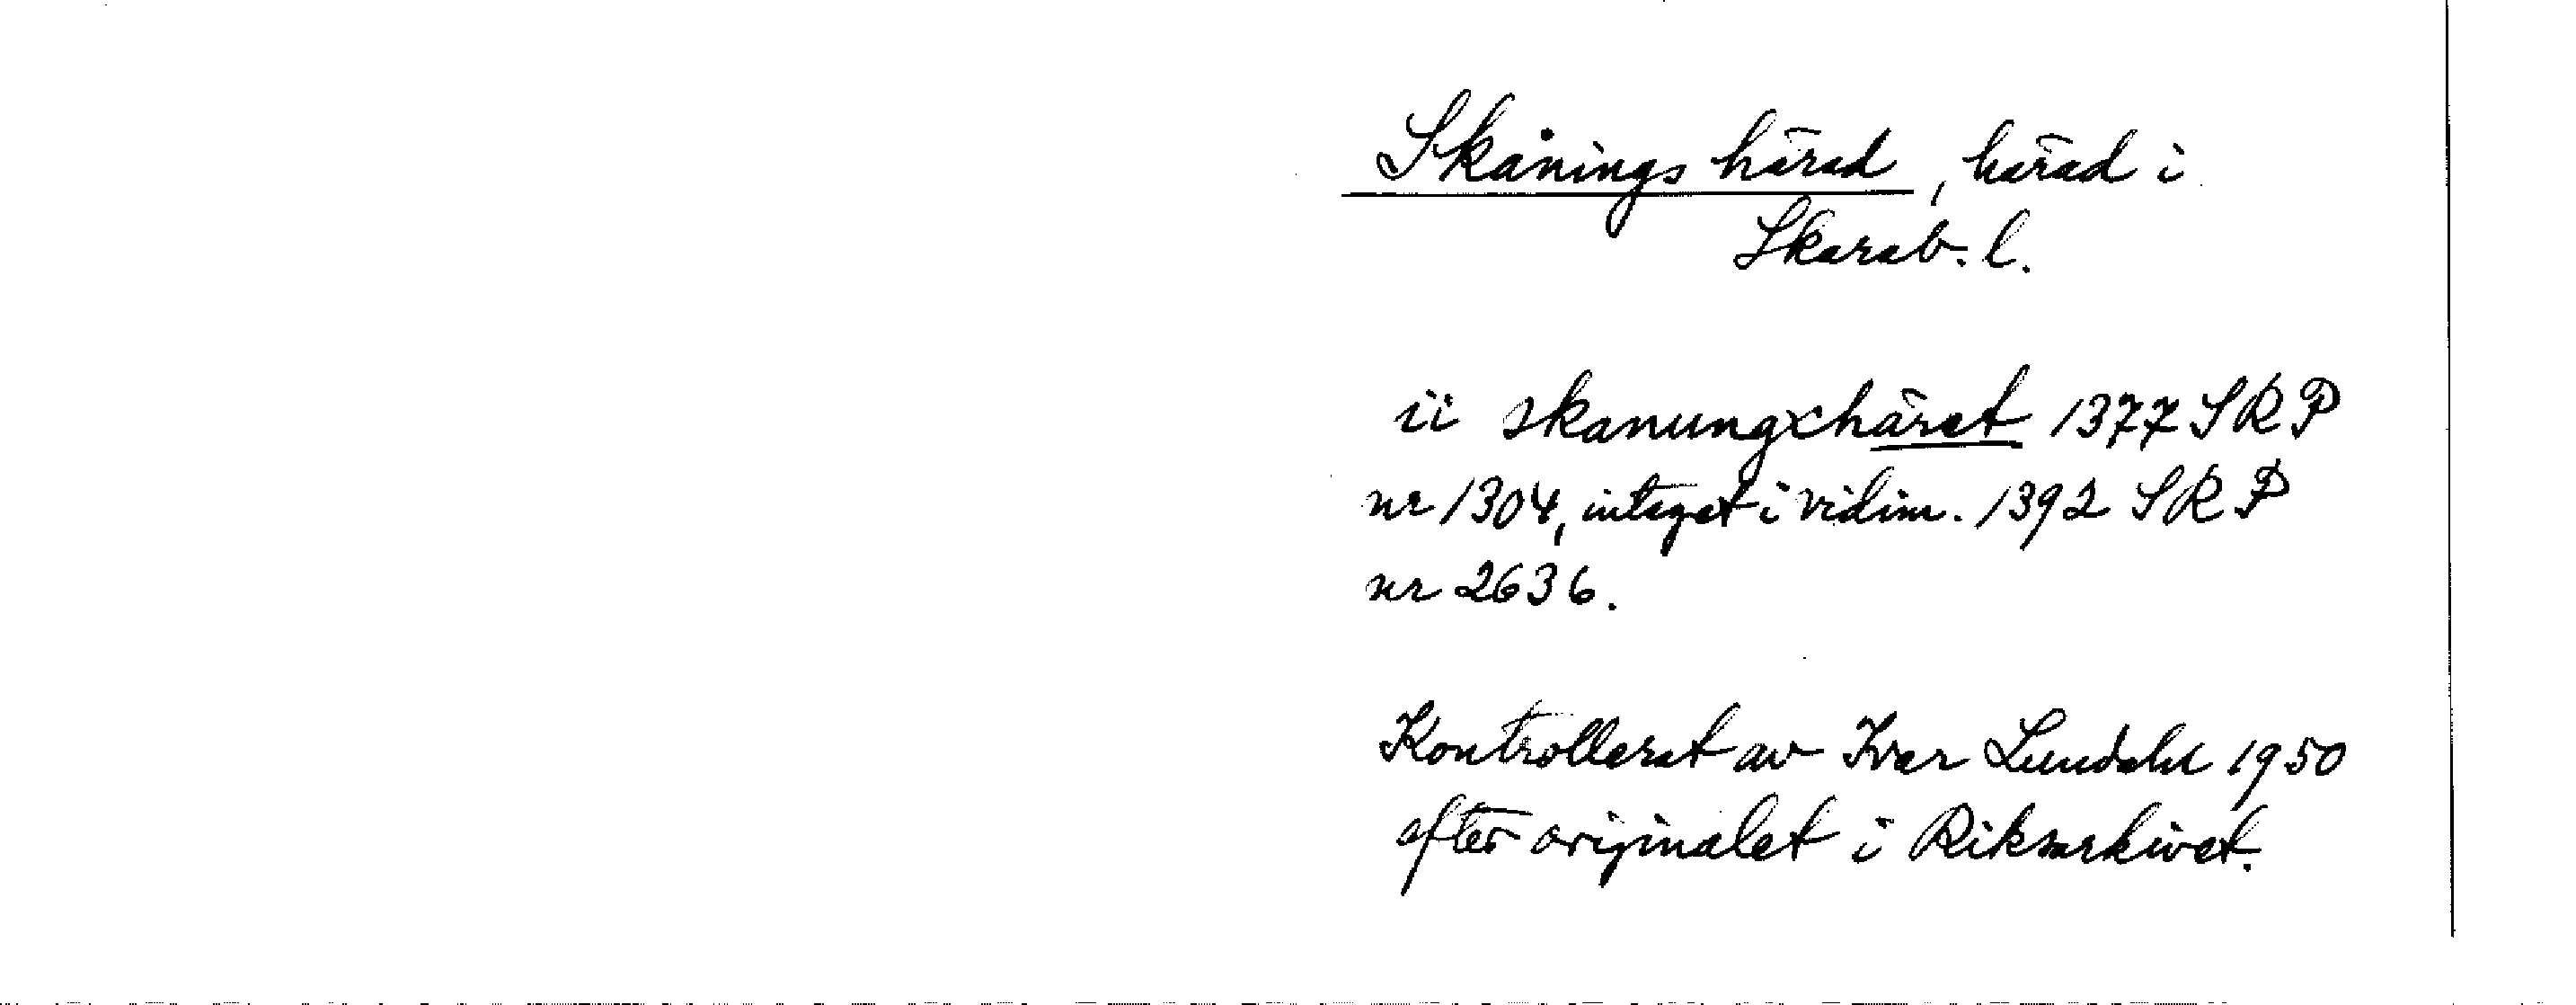 Skånings härad, härad i
Skarab. l.
ii skanungxhäret 1377 SRP
nr 1304, intaget i vidim. 1392 SRP
nr 2636.
Kontrollerat av Ivar Lundahl 1950
efter originalet i Riksarkivet.